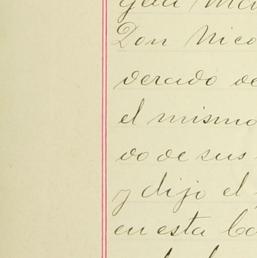 Don Nico
derado de
el mismo
do de sus
y dijo el
en esta